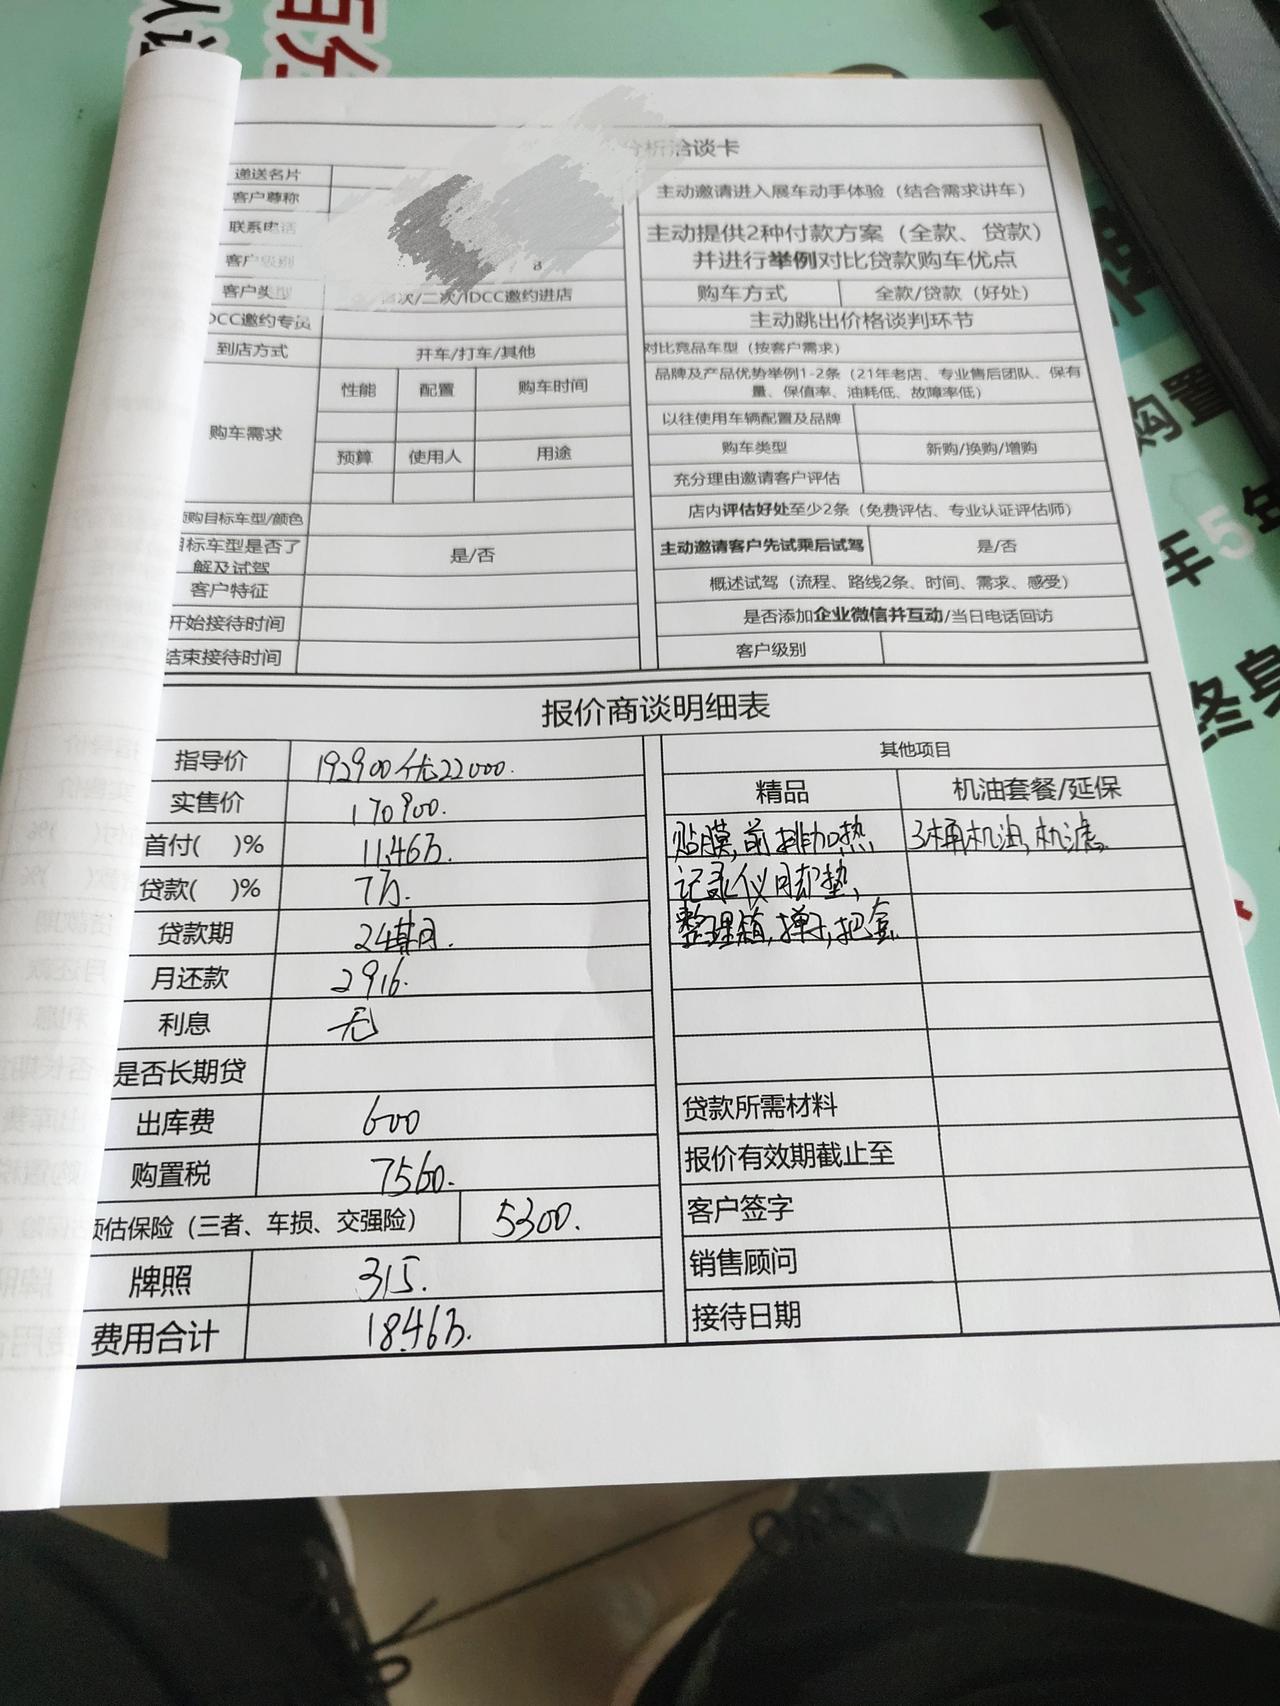 分析洽谈卡
递送名片
客户尊称
联系电话
客户级别
8
客户类型
次/二次/IDCC邀约进店
DCC邀约专员
到店方式
开车/打车/其他
购车需求
性能 配置 购车时间
预算 使用人 用途
预购目标车型/颜色
目标车型是否了
解及试驾
是/否
客户特征
开始接待时间
结束接待时间
主动邀请进入展车动手体验（结合需求讲车）
主动提供2种付款方案（全款、贷款）
并进行举例对比贷款购车优点
购车方式 全款/贷款（好处）
主动跳出价格谈判环节
对比竞品车型（按客户需求）
品牌及产品优势举例1-2条（21年老店、专业售后团队、保有
量、保值率、油耗低、故障率低）
以往使用车辆配置及品牌
购车类型 新购/换购/增购
充分理由邀请客户评估
店内评估好处至少2条（免费评估、专业认证评估师）
主动邀请客户先试乘后试驾 是/否
概述试驾（流程、路线2条、时间、需求、感受）
是否添加企业微信并互动/当日电话回访
客户级别
报价商谈明细表
指导价 192900优22000.
实售价 170900.
首付( )% 11.46万.
贷款( )% 7万.
贷款期 24期.
月还款 2916.
利息 无
是否长期贷
出库费 600
购置税 7560.
预估保险（三者、车损、交强险） 5300.
牌照 315.
费用合计 18.46万.
其他项目
精品 机油套餐/延保
贴膜,前排加热, 3桶机油,机滤.
记录仪,脚垫,
整理箱,掸子,把套
贷款所需材料
报价有效期截止至
客户签字
销售顾问
接待日期
购置
车5年
终身